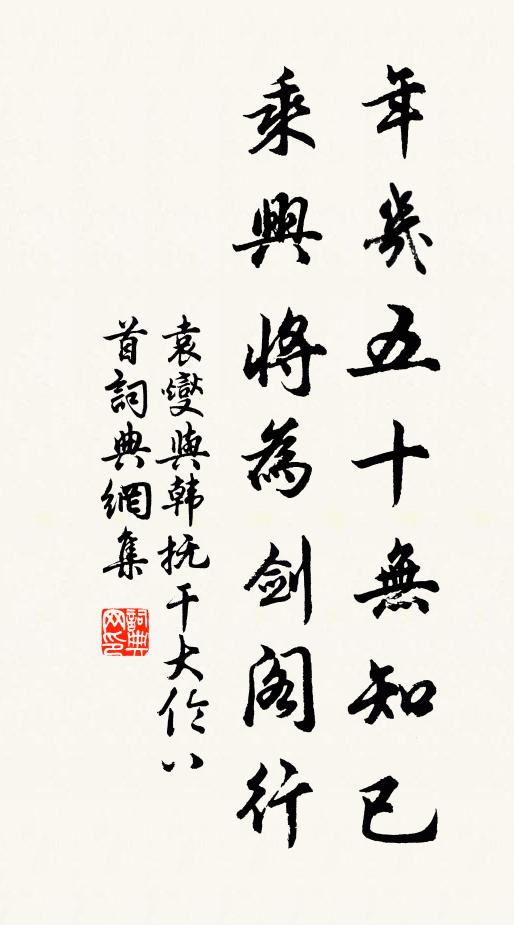 年幾五十無知己
乘興將為劍閣行
袁燮與韓撫干大伦八
首詞典網集
詞典网印